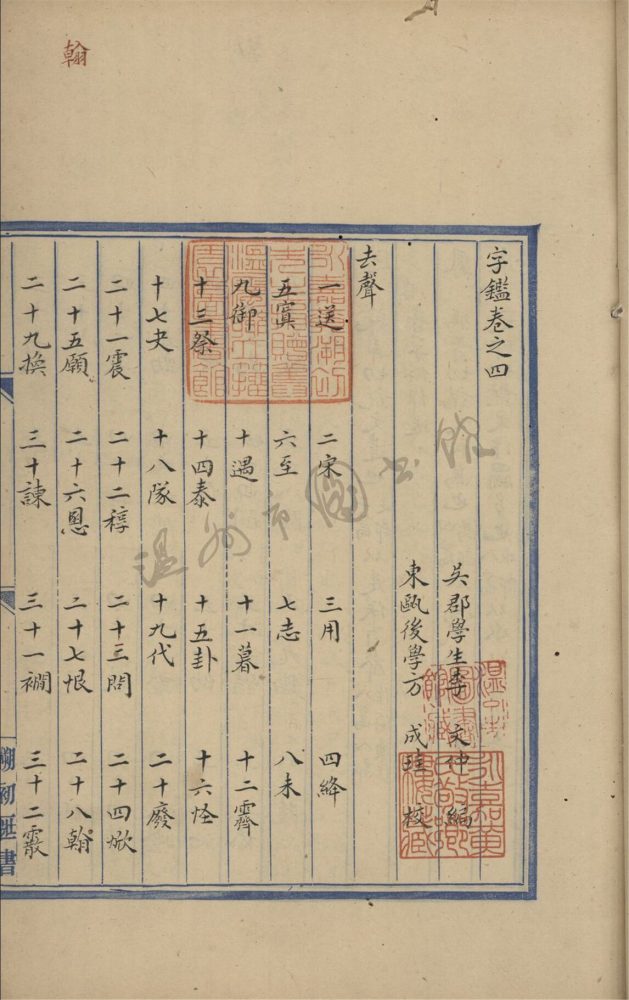 翰
字鑑卷之四
吳郡學生李 文仲 編
東甌後學方 成珪 校
去聲
一送 二宋 三用 四絳
五寘 六至 七志 八未
九御 十遇 十一暮 十二霽
十三祭 十四泰 十五卦 十六怪
十七夬 十八隊 十九代 二十廢
二十一震 二十二稕 二十三問 二十四焮
二十五願 二十六慁 二十七恨 二十八翰
二十九換 三十諫 三十一襉 三十二霰
温州市圖书館